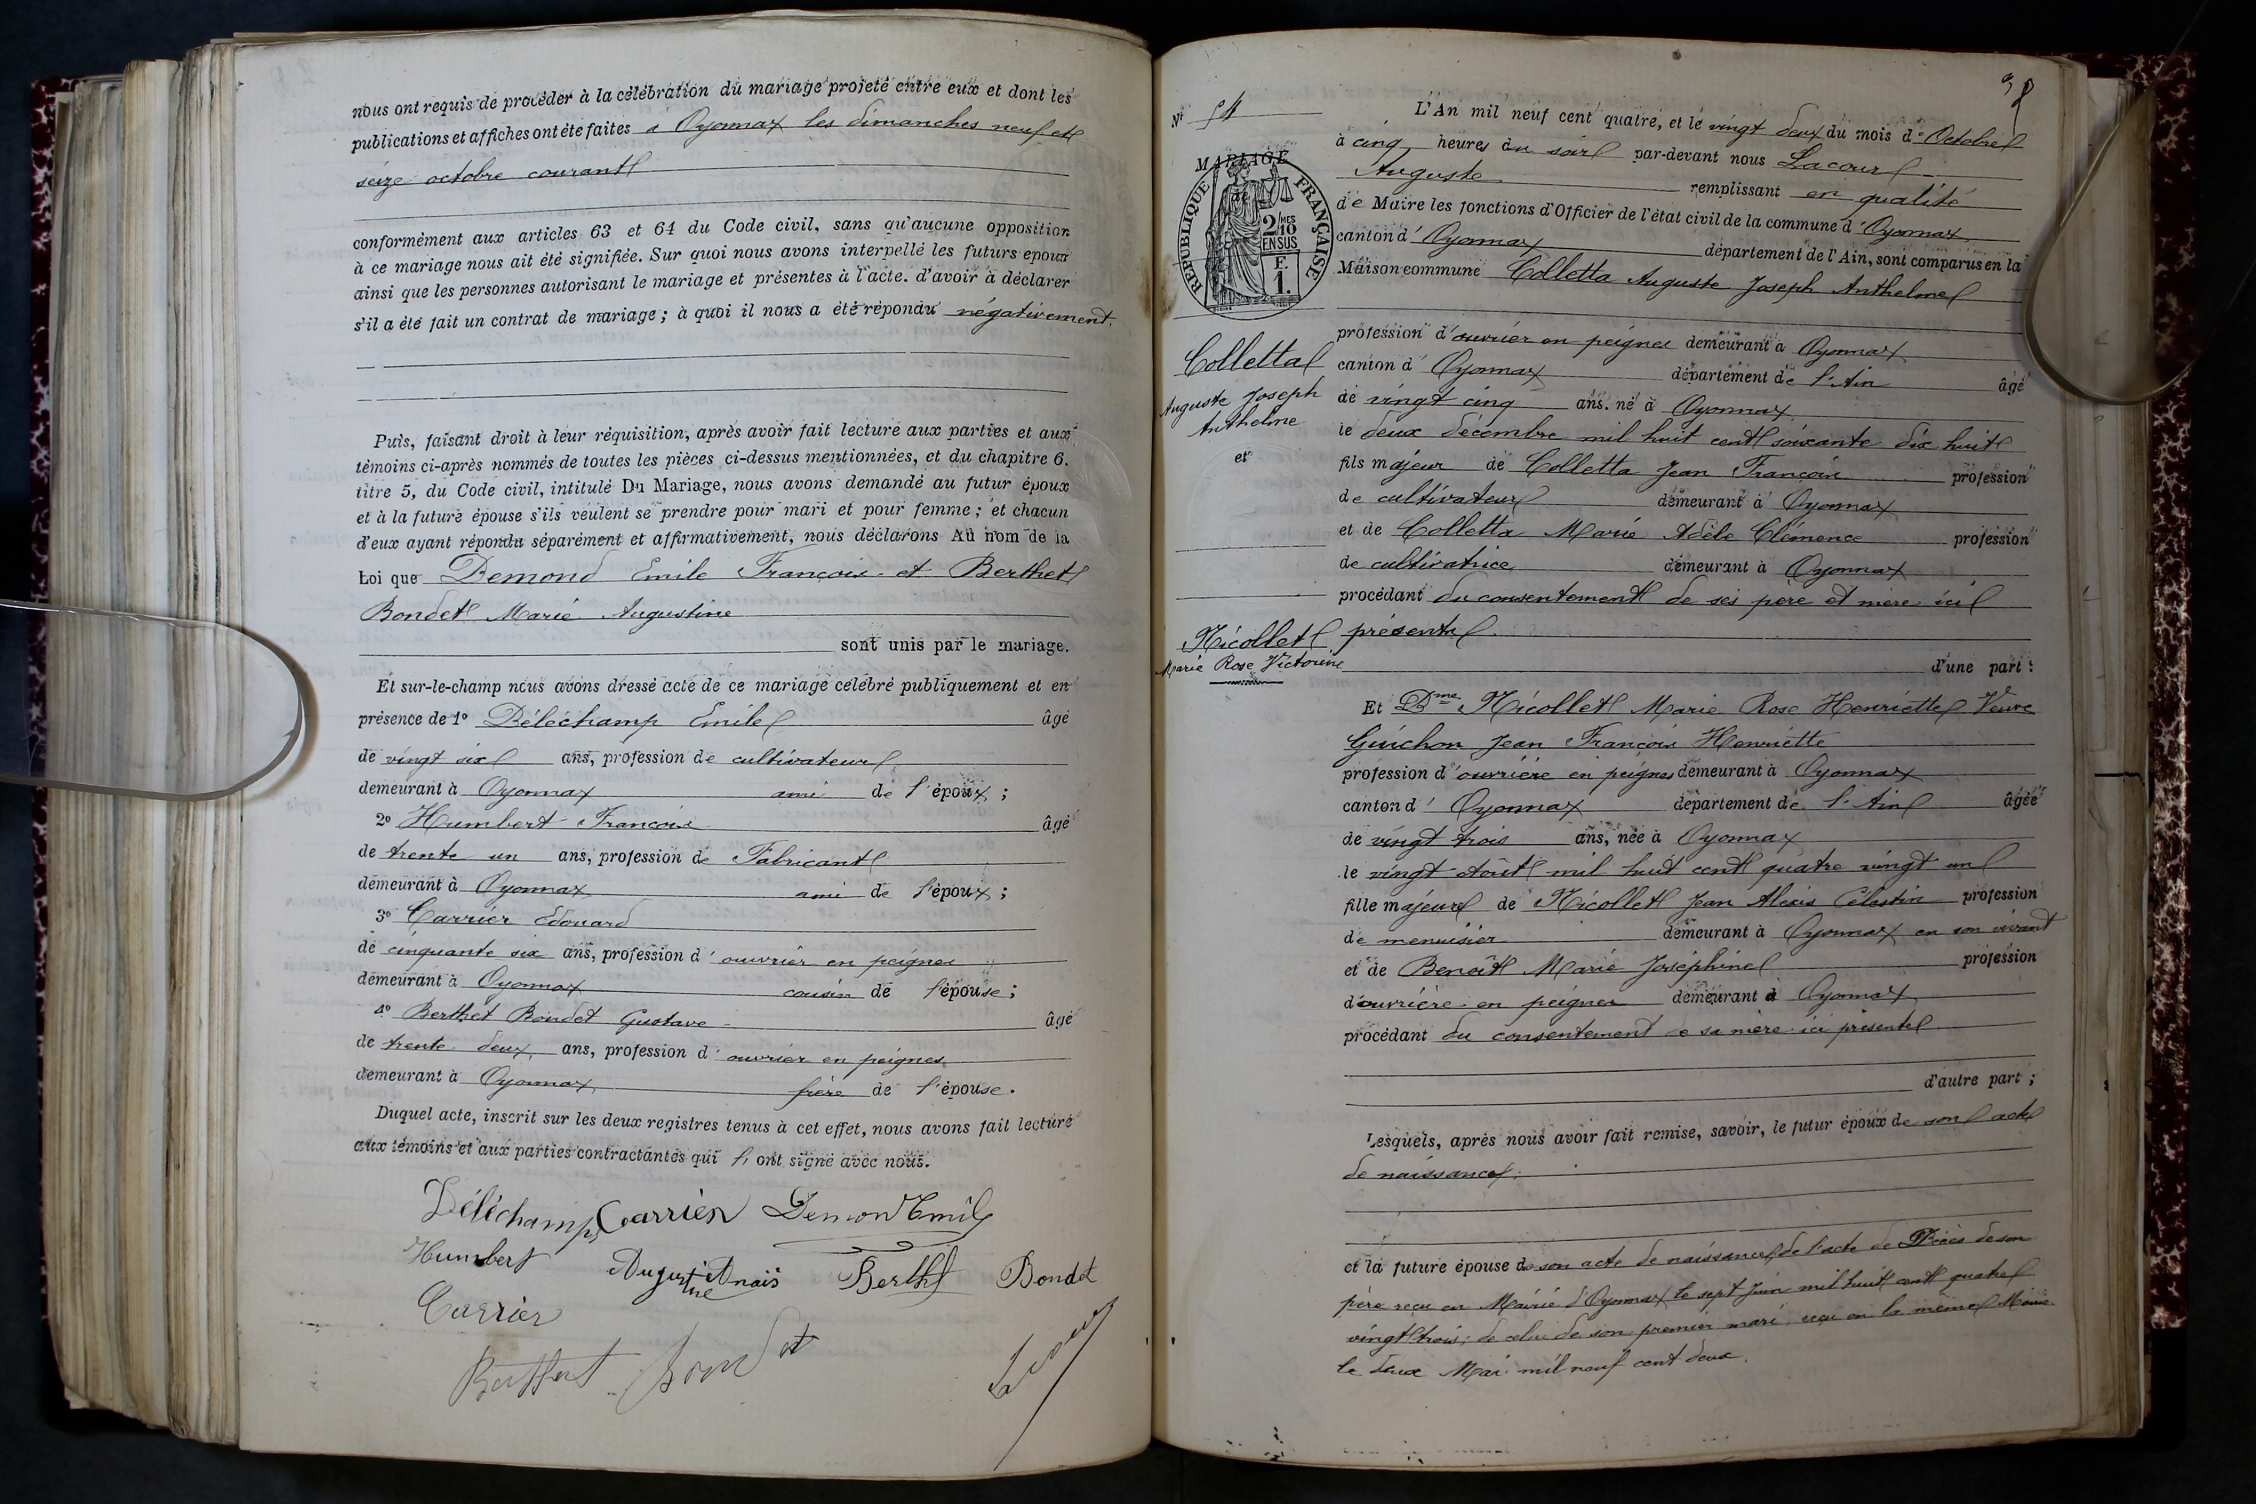 nous ont requis de procéder à la célébration du mariage projeté entre eux et dont les
publications et affiches ont été faites à Oyonnax les dimanches neuf et
seize octobre courant
conformément aux articles 63 et 64 du Code civil, sans qu'aucune opposition
à ce mariage nous ait été signifiée. Sur quoi nous avons interpellé les futurs epoux
ainsi que les personnes autorisant le mariage et présentes à l'acte. d'avoir à déclarer
s'il a été fait un contrat de mariage ; à quoi il nous a été répondu négativement.
Puis, faisant droit à leur réquisition, après avoir fait lecture aux parties et aux
témoins ci-après nommés de toutes les pièces ci-dessus mentionnées, et du chapitre 6.
titre 5, du Code civil, intitulé Du Mariage, nous avons demandé au futur époux
et à la future épouse s'ils veulent se prendre pour mari et pour femme ; et chacun
d'eux ayant répondu séparément et affirmativement, nous déclarons Au nom de la
Loi que Demond Emile François et Berthet
Bondet Marie Augustine
sont unis par le mariage.
Et sur-le-champ nous avons dressé acte de ce mariage célébré publiquement et en
présence de 1º Déléchamp Emile âgé
de vingt six ans, profession de cultivateur
demeurant à Oyonnax ami de l'époux ;
2º Humbert François âgé
de trente un ans, profession de Fabricant
demeurant à Oyonnax ami de l'époux ;
3º Carrier Edouard
de cinquante six ans, profession d'ouvrier en peignes
demeurant à Oyonnax cousin de l'épouse ;
4º Berthet Bondet Gustave âgé
de trente deux ans, profession d'ouvrier en peignes
demeurant à Oyonnax frère de l'épouse.
Duquel acte, inscrit sur les deux registres tenus à cet effet, nous avons fait lecture
aux témoins et aux parties contractantes qui l'ont signé avec nous.
Déléchamp Carrier Demond Emile
Humbert Augustine Anaïs Berthet Bondet
Carrier
Berthet Bondet Lacour
38
Nº 54
L'An mil neuf cent quatre, et le vingt deux du mois d'Octobre
à cinq heures du soir par-devant nous Lacour
Auguste remplissant en qualité
de Maire les fonctions d'Officier de l'état civil de la commune d'Oyonnax
canton d'Oyonnax département de l'Ain, sont comparus en la
Maison commune Colletta Auguste Joseph Anthelme
MARIAGE
RÉPUBLIQUE FRANÇAISE
2/10 MES
EN SUS
F.
1.
Colletta
Auguste Joseph
Anthelme
et
Nicollet
Marie Rose Victorine
profession d'ouvrier en peignes demeurant à Oyonnax
canton d'Oyonnax département de l'Ain âgé
de vingt cinq ans. né à Oyonnax
le deux décembre mil huit cent soixante dix huit
fils majeur de Colletta Jean François profession
de cultivateur demeurant à Oyonnax
et de Colletta Marie Adèle Clémence profession
de cultivatrice demeurant à Oyonnax
procédant du consentement de ses père et mère ici
présents
d'une part :
Et Dme Nicollet Marie Rose Henriette Veuve
Guichon Jean François Henriette
profession d'ouvrière en peignes demeurant à Oyonnax
canton d'Oyonnax département de l'Ain âgée
de vingt trois ans, née à Oyonnax
le vingt Août mil huit cent quatre vingt un
fille majeure de Nicollet Jean Alexis Célestin profession
de menuisier demeurant à Oyonnax en son vivant
et de Benoît Marie Joséphine profession
d'ouvrière en peignes demeurant à Oyonnax
procédant du consentement de sa mère ici présente
d'autre part ;
Lesquels, après nous avoir fait remise, savoir, le futur époux de son acte
de naissance,
et la future épouse de son acte de naissance, de l'acte de Décès de son
père reçu en Mairie d'Oyonnax le sept Juin mil huit cent quatre
vingt trois ; de celui de son premier mari, reçu en la même Mairie
le deux Mai mil neuf cent deux.